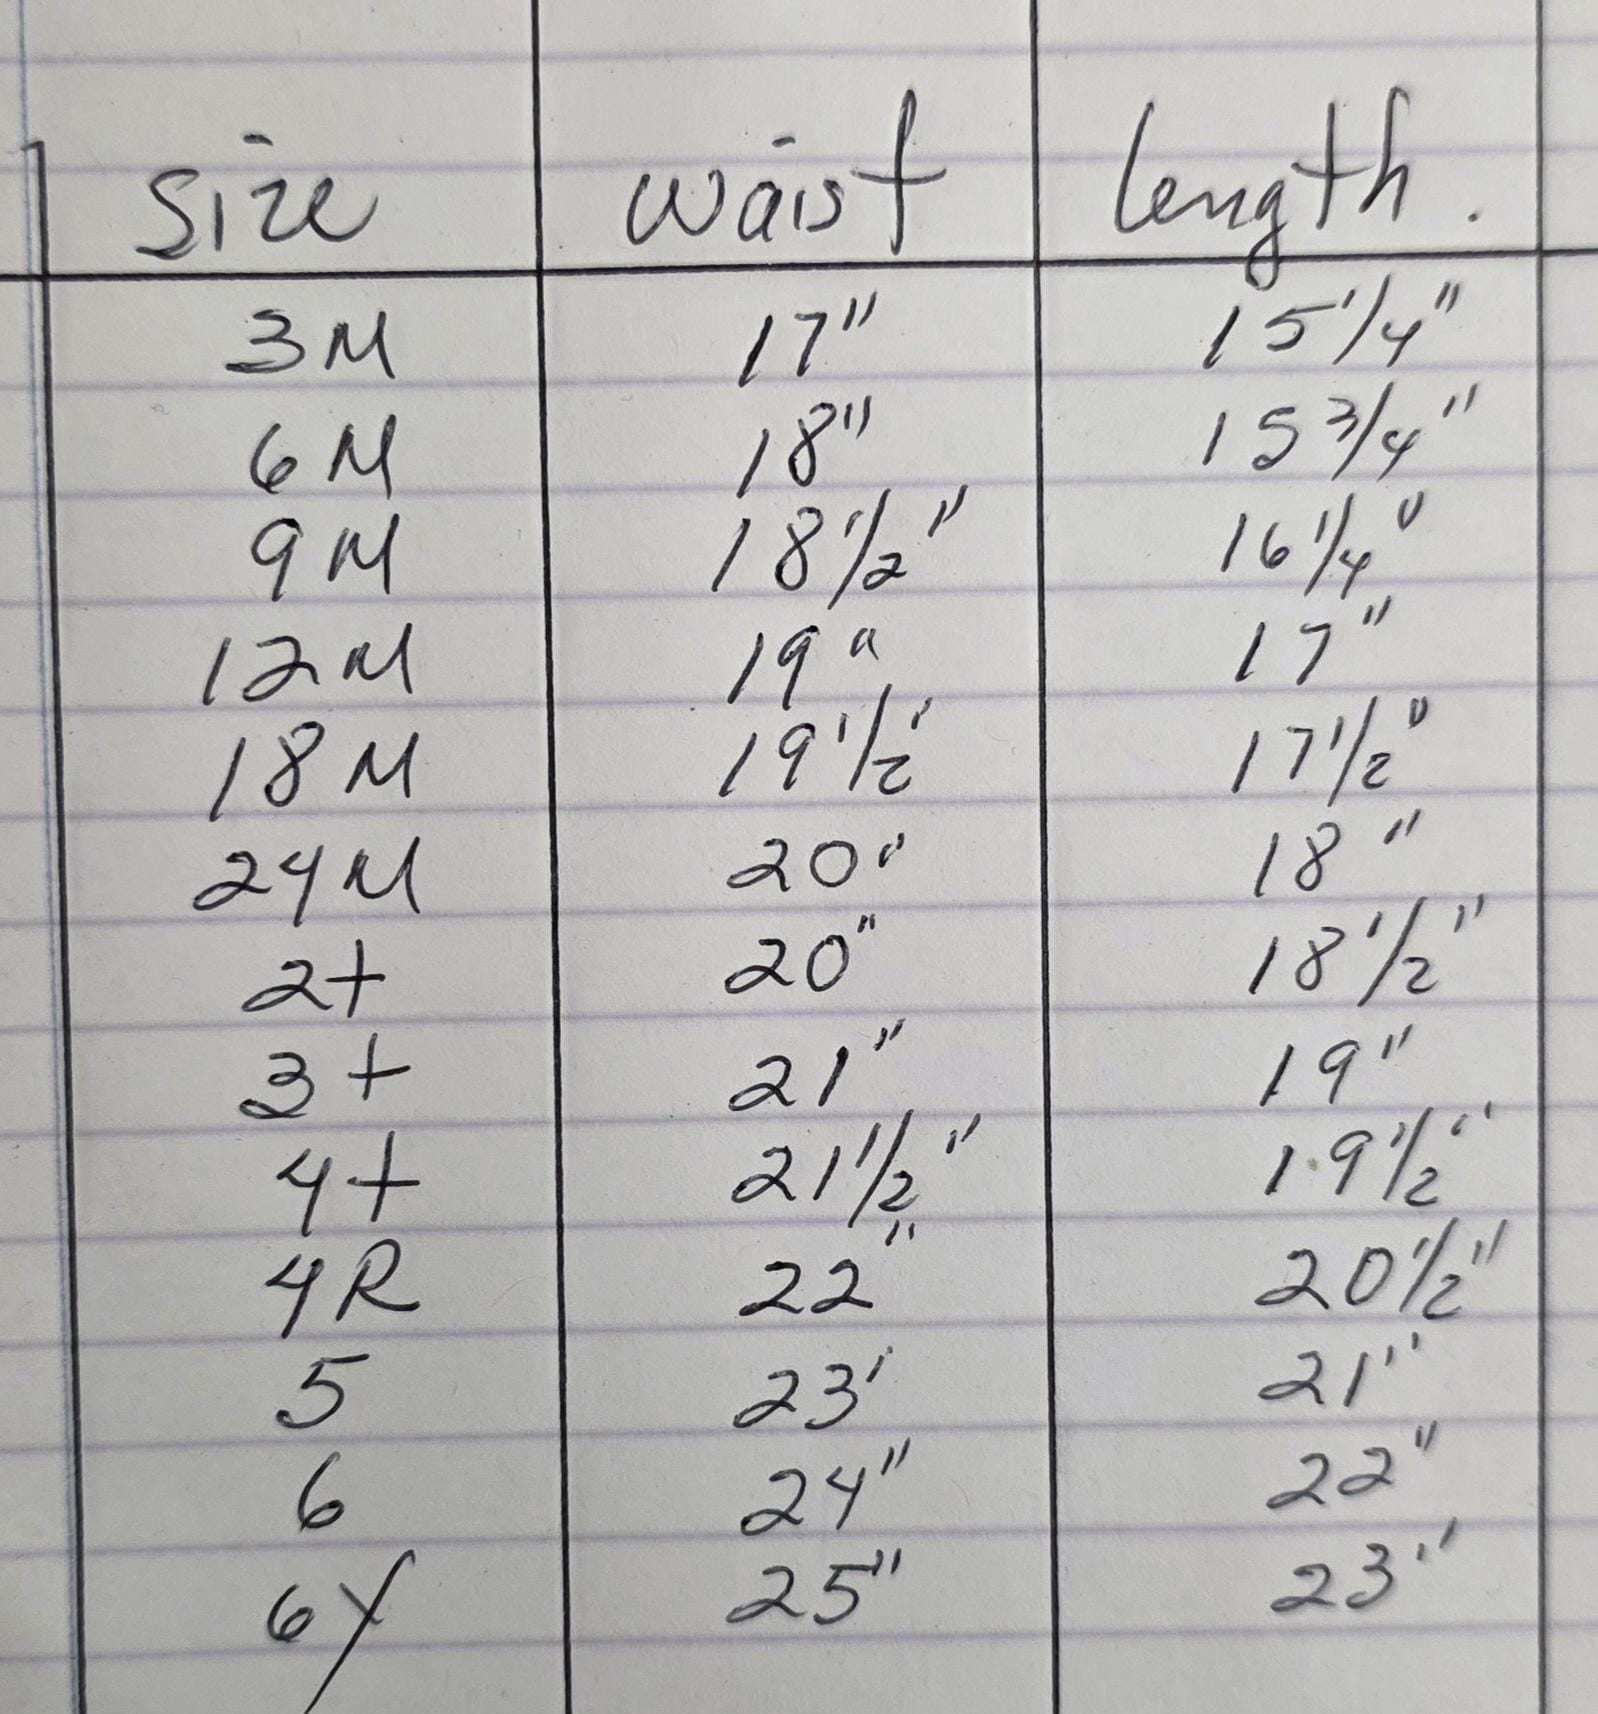 Size waist length.
3M 17" 15 1/4"
6M 18" 15 3/4"
9M 18 1/2" 16 1/4"
12M 19" 17"
18M 19 1/2" 17 1/2"
24M 20" 18"
2t 20" 18 1/2"
3t 21" 19"
4t 21 1/2" 19 1/2"
4R 22" 20 1/2"
5 23' 21"
6 24" 22"
6Y 25" 23"